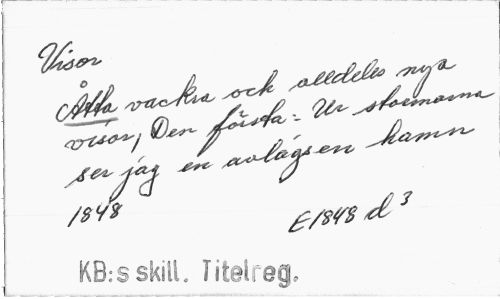 Visor
Åtta vackra och alldeles nya
visor, Den första: Ur stormarna
ser jag en avlägsen hamn
1848
E1848 d 3
KB:s skill. Titelreg.